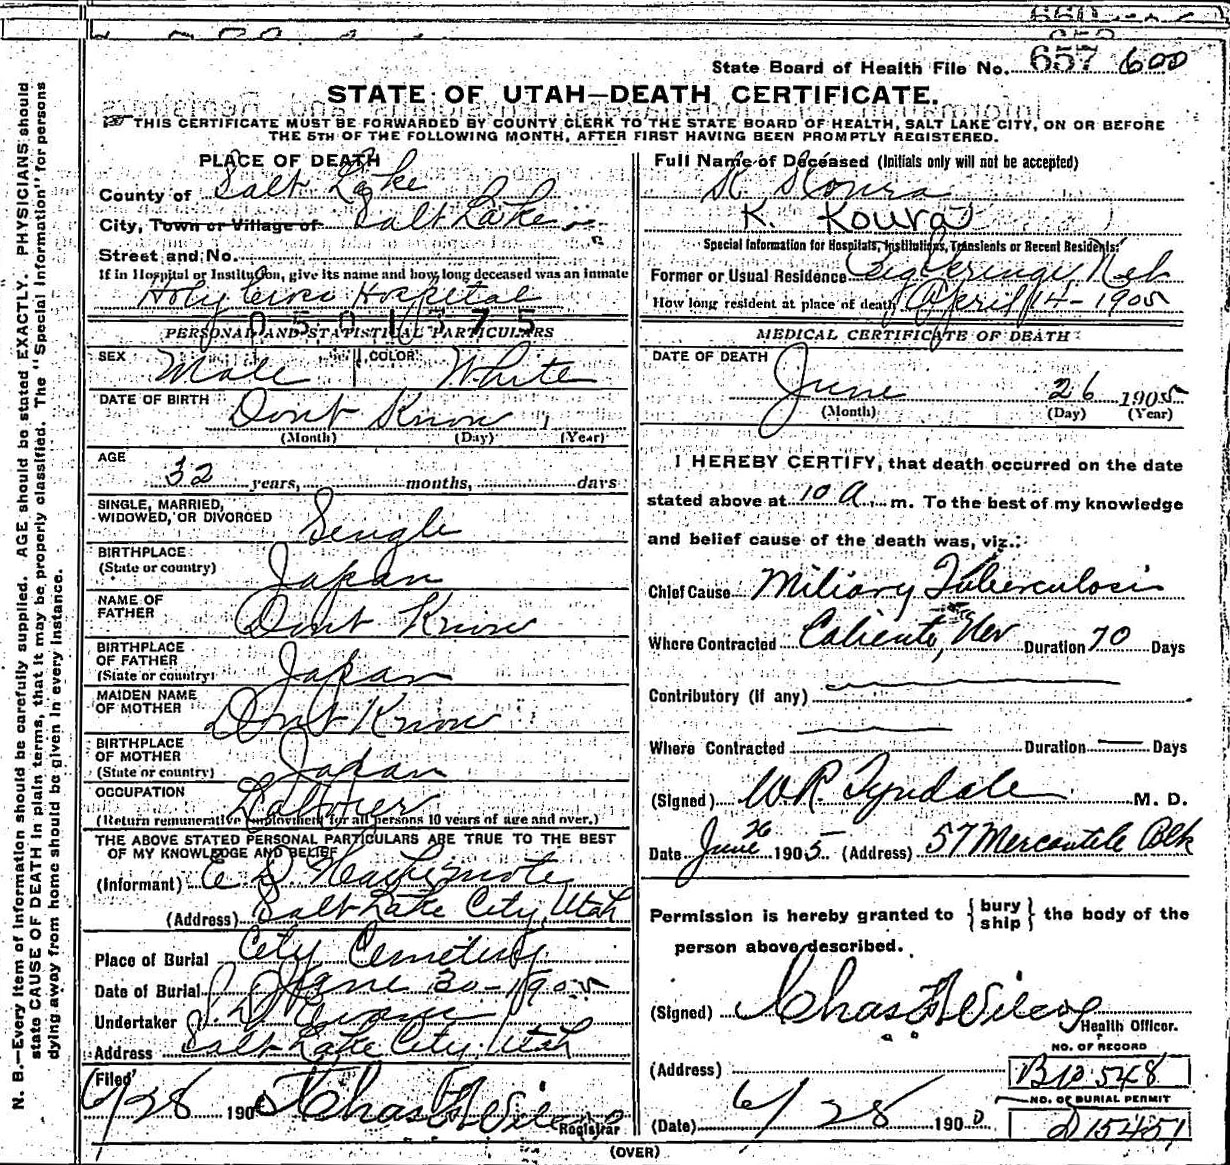 State Board of Health File No. 657 600
STATE OF UTAH—DEATH CERTIFICATE.
THIS CERTIFICATE MUST BE FORWARDED BY COUNTY CLERK TO THE STATE BOARD OF HEALTH, SALT LAKE CITY, ON OR BEFORE
THE 5TH OF THE FOLLOWING MONTH, AFTER FIRST HAVING BEEN PROMPTLY REGISTERED.
N. B.—Every item of information should be carefully supplied. AGE should be stated EXACTLY. PHYSICIANS should
state CAUSE OF DEATH in plain terms, that it may be properly classified. The "Special Information" for persons
dying away from home should be given in every instance.
PLACE OF DEATH
County of Salt Lake
City, Town or Village of Salt Lake
Street and No.
If in Hospital or Institution, give its name and how long deceased was an inmate
Holy Cross Hospital
0501375
PERSONAL AND STATISTICAL PARTICULARS
SEX Male COLOR White
DATE OF BIRTH Dont Know
(Month) (Day) (Year)
AGE
32 years, months, days
SINGLE, MARRIED,
WIDOWED, OR DIVORCED Single
BIRTHPLACE
(State or country) Japan
NAME OF
FATHER Dont Know
BIRTHPLACE
OF FATHER
(State or country) Japan
MAIDEN NAME
OF MOTHER Dont Know
BIRTHPLACE
OF MOTHER
(State or country) Japan
OCCUPATION Laborer
(Return remunerative employment for all persons 10 years of age and over.)
THE ABOVE STATED PERSONAL PARTICULARS ARE TRUE TO THE BEST
OF MY KNOWLEDGE AND BELIEF
(Informant) E. D. Hashimoto
(Address) Salt Lake City, Utah
Place of Burial City Cemetery
Date of Burial June 30-1905
Undertaker
Address Salt Lake City. Utah
Filed
6/28 190 Chas F Wilcox
Registrar
Full Name of Deceased (Initials only will not be accepted)
K Koura
K. Koura
Special Information for Hospitals, Institutions, Transients or Recent Residents:
Former or Usual Residence Neb
How long resident at place of death April 14-1905
MEDICAL CERTIFICATE OF DEATH
DATE OF DEATH
June 26 1905
(Month) (Day) (Year)
I HEREBY CERTIFY, that death occurred on the date
stated above at 10 a. m. To the best of my knowledge
and belief cause of the death was, viz.:
Chief Cause Miliary Tuberculosis
Where Contracted Caliente, Nev Duration 70 Days
Contributory (if any)
Where Contracted Duration — Days
(Signed) W.R. Tyndale M. D.
Date June 26 1905 (Address) 57 Mercantile Blk
Permission is hereby granted to {bury ship} the body of the
person above described.
(Signed) Chas F Wilcox
Health Officer.
NO. OF RECORD
(Address) B 12548
NO. OF BURIAL PERMIT
(Date) 6/28 190 D 15451
(OVER)